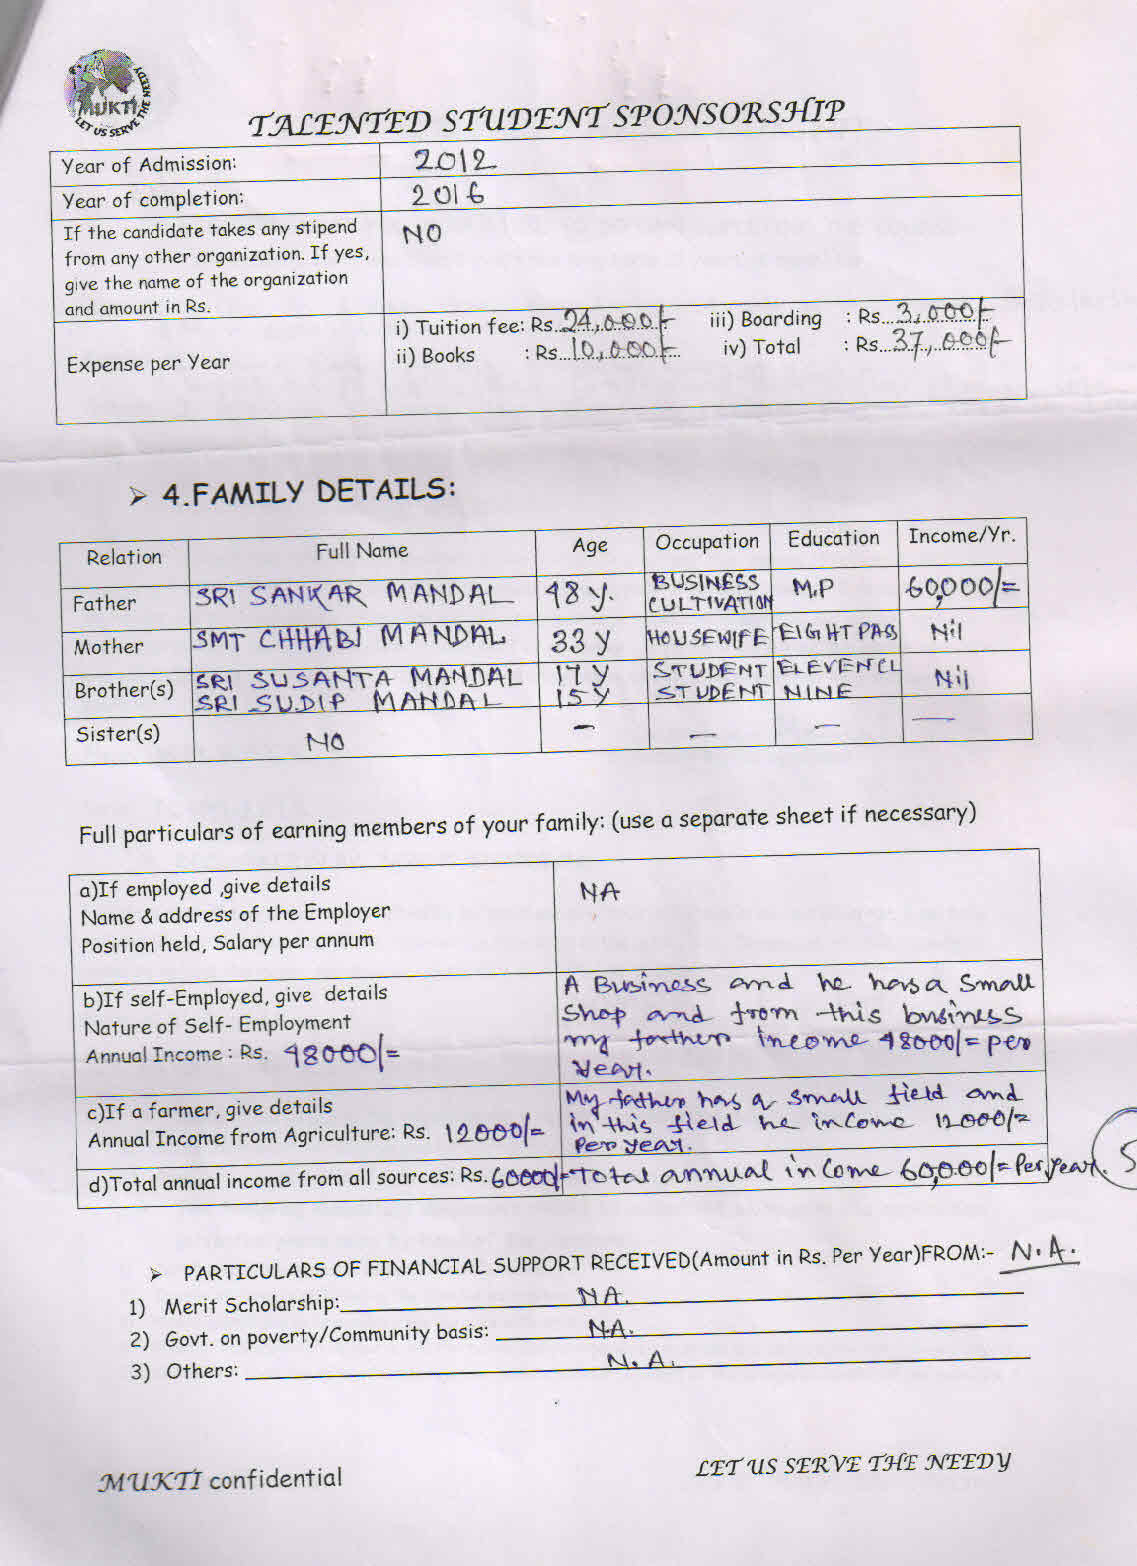 MUKTI
LET US SERVE THE NEEDY
TALENTED STUDENT SPONSORSHIP
Year of Admission: 2012
Year of completion: 2016
If the candidate takes any stipend NO
from any other organization. If yes,
give the name of the organization
and amount in Rs.
Expense per Year
i) Tuition fee: Rs...24,000/- iii) Boarding : Rs...3,000/-
ii) Books : Rs...10,000/- iv) Total : Rs...37,000/-
➢ 4.FAMILY DETAILS:
Relation Full Name Age Occupation Education Income/Yr.
Father SRI SANKAR MANDAL 48 y. BUSINESS CULTIVATION M.P 60,000/=
Mother SMT CHHABI MANDAL 33 y HOUSEWIFE EIGHT PASS Nil
Brother(s) SRI SUSANTA MANDAL 17 y STUDENT ELEVEN CL Nil
SRI SUDIP MANDAL 15 y STUDENT NINE
Sister(s) NO — — — —
Full particulars of earning members of your family: (use a separate sheet if necessary)
a)If employed ,give details NA
Name & address of the Employer
Position held, Salary per annum
b)If self-Employed, give details
Nature of Self- Employment
Annual Income : Rs. 48000/=
A Business and he has a small
shop and from this business
my farther income 48000/= per
year.
c)If a farmer, give details
Annual Income from Agriculture: Rs. 12000/=
My father has a small field and
in this field he income 12000/=
per year.
d)Total annual income from all sources: Rs. 60000/= Total annual income 60,000/= Per year.
➢ PARTICULARS OF FINANCIAL SUPPORT RECEIVED(Amount in Rs. Per Year)FROM:- N.A.
1) Merit Scholarship: NA.
2) Govt. on poverty/Community basis: NA.
3) Others: N.A.
MUKTI confidential LET US SERVE THE NEEDY